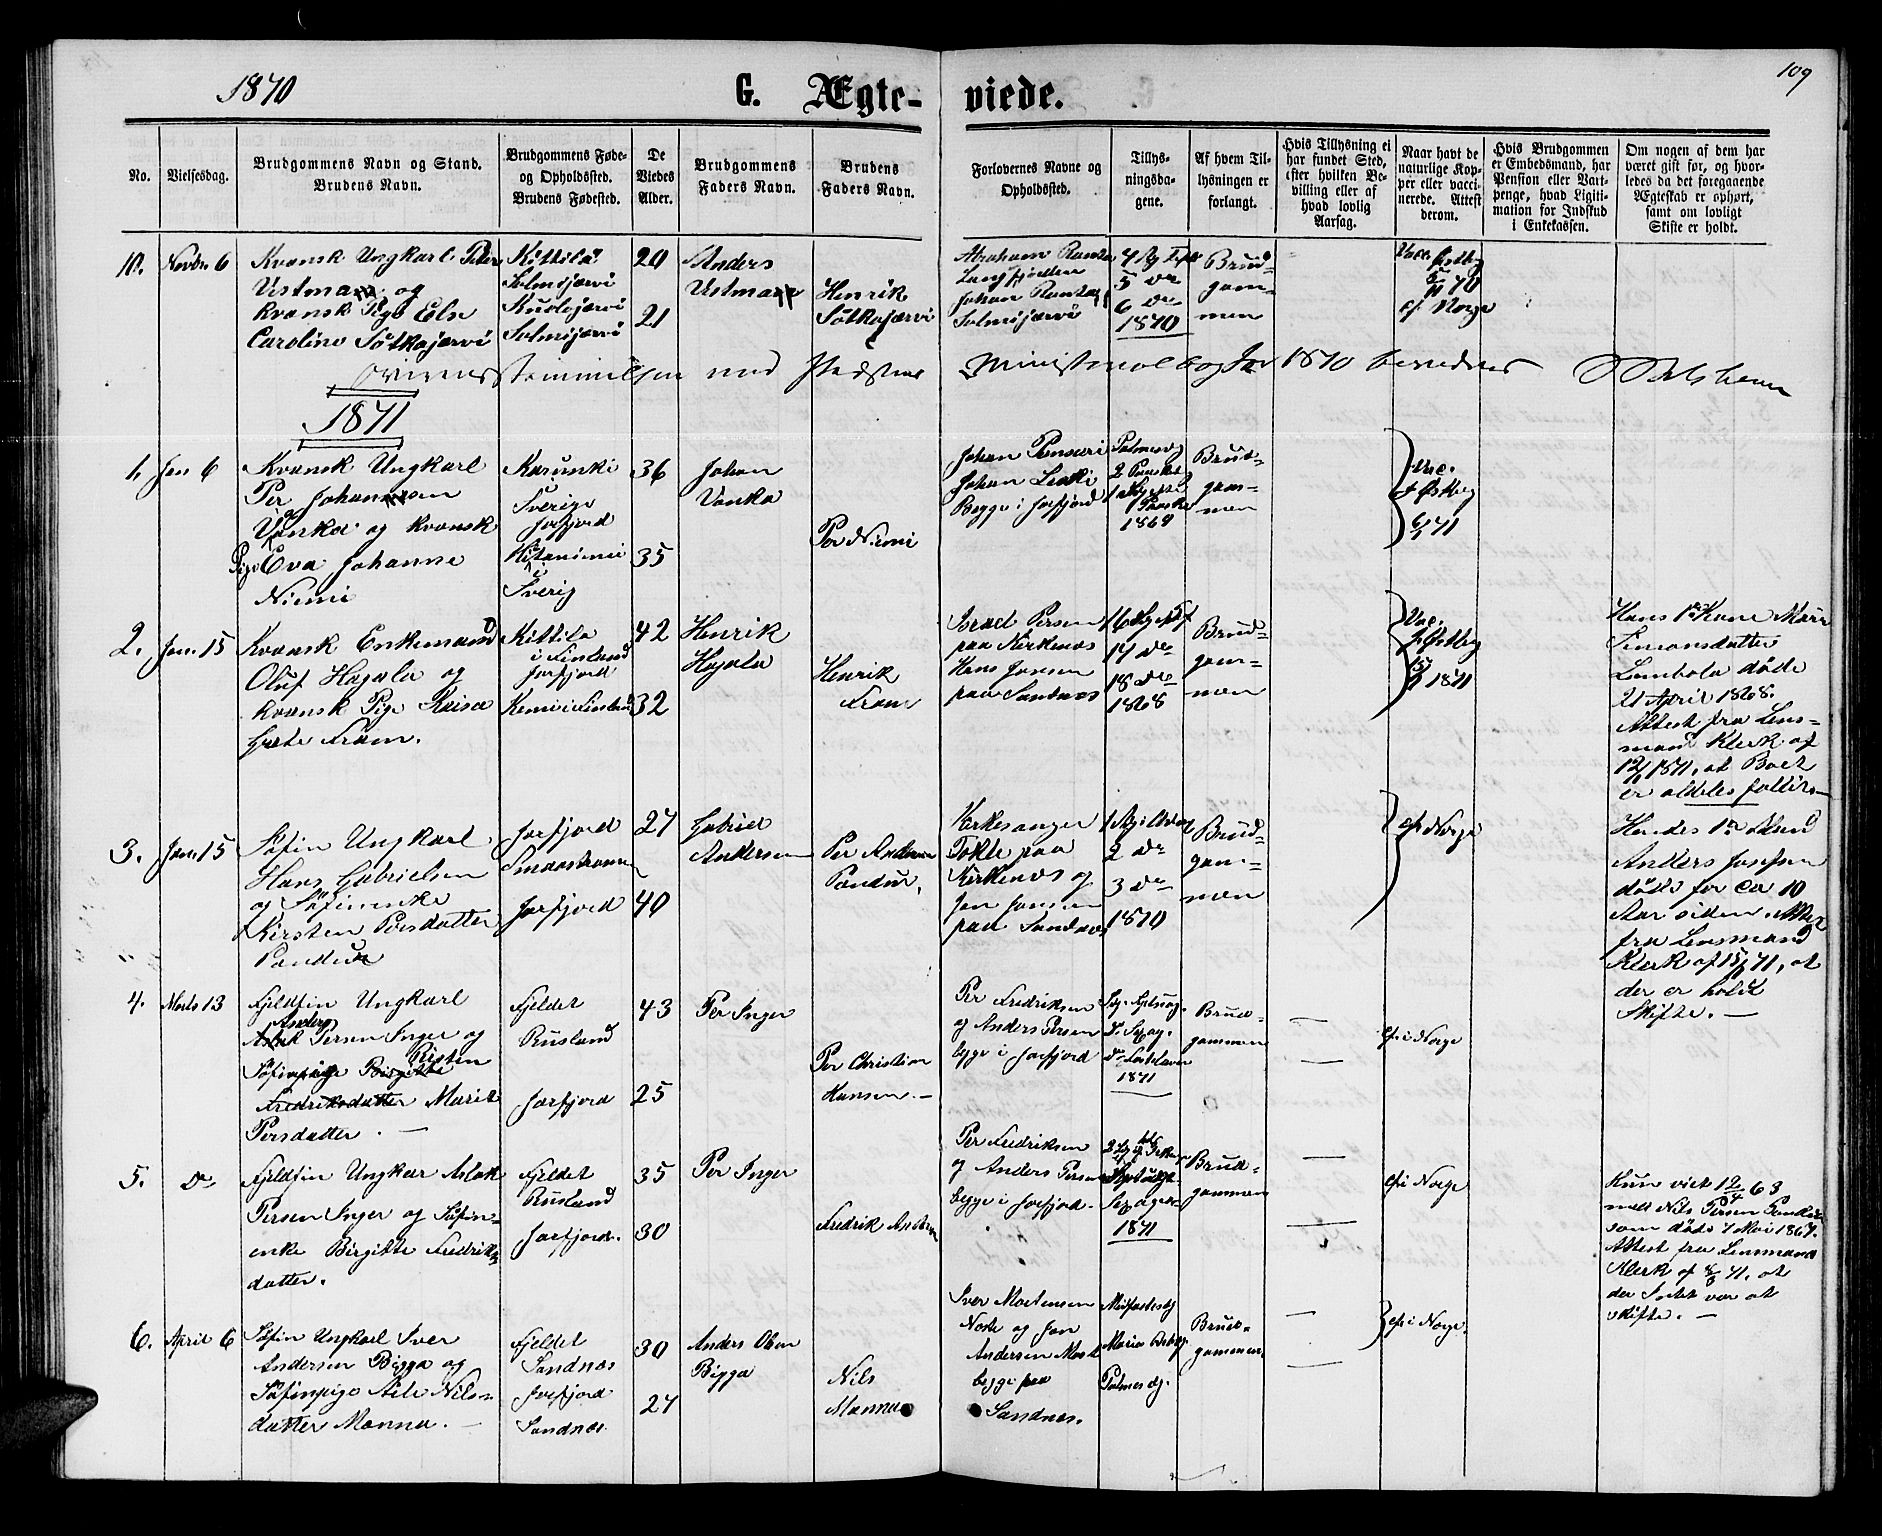 1870
G. Ægte-
viede.
109
No.
Vielsesdag.
Brudgommens Navn og Stand.
Brudens Navn.
Brudgommens Føde-
og Opholdssted.
Brudens Fødested.
De
Viedes
Alder.
Brudgommens
Faders Navn.
Brudens
Faders Navn.
Forlovernes Navne og
Opholdssted.
Tillys-
ningsda-
gene.
Af hvem Til-
lysningen er
forlangt.
Hvis Tillysning ei
har fundet Sted,
efter hvilken Be-
villing eller af
hvad lovlig
Aarsag.
Naar havt de
naturlige Kop-
per eller vacci-
nerede. Attest
derom.
Hvis Brudgommen
er Embedsmand, har
Pension eller Vart-
penge, hvad Ligiti-
mation for Indskud
i Enkekassen.
Om nogen af dem har
været gift før, og hvor-
ledes da det foregaaende
Ægteskab er ophørt,
samt om lovligt
Skifte er holdt.
10.
Novbr. 6
Kvænsk Ungkarl Peter
Vestmann og
kvænsk Pige Else
Caroline Sotkajærvi
Kittilä
Solmijærvi
Kuolajærvi
Solmijærvi
20
21
Anders
Vestmann
Henrik
Sotkajærvi
Abraham Ranta
Langfjorden
Johan Ranta
Solmijærvi
5 do
6 do
1870
Brud-
gom-
men
Vacc. Østby
70
ef. Norge
Overensstemmelsen med Præstens Ministerialbog for 1870 bevidnes
1871
1.
Jan 6
Kvænsk Ungkarl
Per Johannsen
Vanka og kvænsk
Pige Eva Johanne
Niemi
Karunki
i
Sverige
Jarfjord
i
Sverig
36
35
Johan
Vanka
Per Niemi
Johan
Johan
Begge i Jarfjord
Palmesdg
2 Paaske
1869
Brud-
gom-
men
Vac.
f Østby
6/1 71
2.
Jan. 15
Kvænsk Enkemand
Oluf Hajala og
kvænsk Pige Kaisa
Grete Fram.
Kittila
i Finland
Jarfjord
Kemi i Finland
42
32
Henrik
Hajala
Henrik
Fram
Israel Persen
paa Kirkenæs
Hans Jansen
paa Sandnæs
17 do
18 do
1868
Brud-
gom-
men
Vac.
f. Østby
1871
Hans 1ste Kone Marie
Simonsdatter
Lambola døde
21 April 1868.
Attest fra Lens-
mand Klerk af
12/1 1871, at Boet
er aldeles fallit.
3.
Jan. 15
Søfin Ungkarl
Hans Gabrielsen
og Søfinenke
Kirsten Persdatter
Pandur
Jarfjord
Jarfjord
27
40
Gabriel
Andersen
Per Andersen
Pandur.
Kirkesanger
Tokle paa
Kirkenæs og
Jan Jansen
paa Sandnæs
2 do
3 do
1870
Brud-
gom-
men
ef i Norge
Hendes 1ste Mand
Anders Josefsen
døde for ca 10
Aar siden. Attest
fra Lensmand
Klerk af 15/1 71, at
der er holdt
Skifte. —
4.
Marts 13
Fjeldfin Ungkarl
Anders
Aslak Persen Inger og
Søfinpige Birgitte Kirsten
Fredriksdatter Marit
Persdatter. —
Fjeldet
Rusland
Jarfjord
43
25
Per Inger
Per Christian
Hansen. —
Per Fredriksen
og Anders Persen
begge i Jarfjord
1871
Brud-
gommen
ef i Norge
5.
Do
Fjeldfin Ungkar Aslak
Persen Inger og Søfin-
enke Birgitte Fredriks-
datter.
Fjeldet
Rusland
Jarfjord.
35
30
Per Inger
Fredrik Andersen
Per Fredriksen
og Anders Persen
begge i Jarfjord.
1871
Brud-
gommen
ef i Norge
Hun viet 12/4 63
med Nils Persen Pandur
som døde 7 Mai 1867.
Attest fra Lensmand
Klerk af 8/3 71, at
der Intet var at
skifte. —
6.
April 6
Søfin Ungkarl Iver
Andersen Bigga og
Søfinpige Nils-
datter Manna. —
Fjeldet
Sandnæs
Jarfjord
Sandnæs.
30
27
Anders Olsen
Bigga
Nils
Manna
Iver Mortensen
Noste og Jon
Andersen
begge paa
Sandnæs.
Midfastesdg
Maria
Palmesdg.
Brud-
gommen.
ef i Norge.